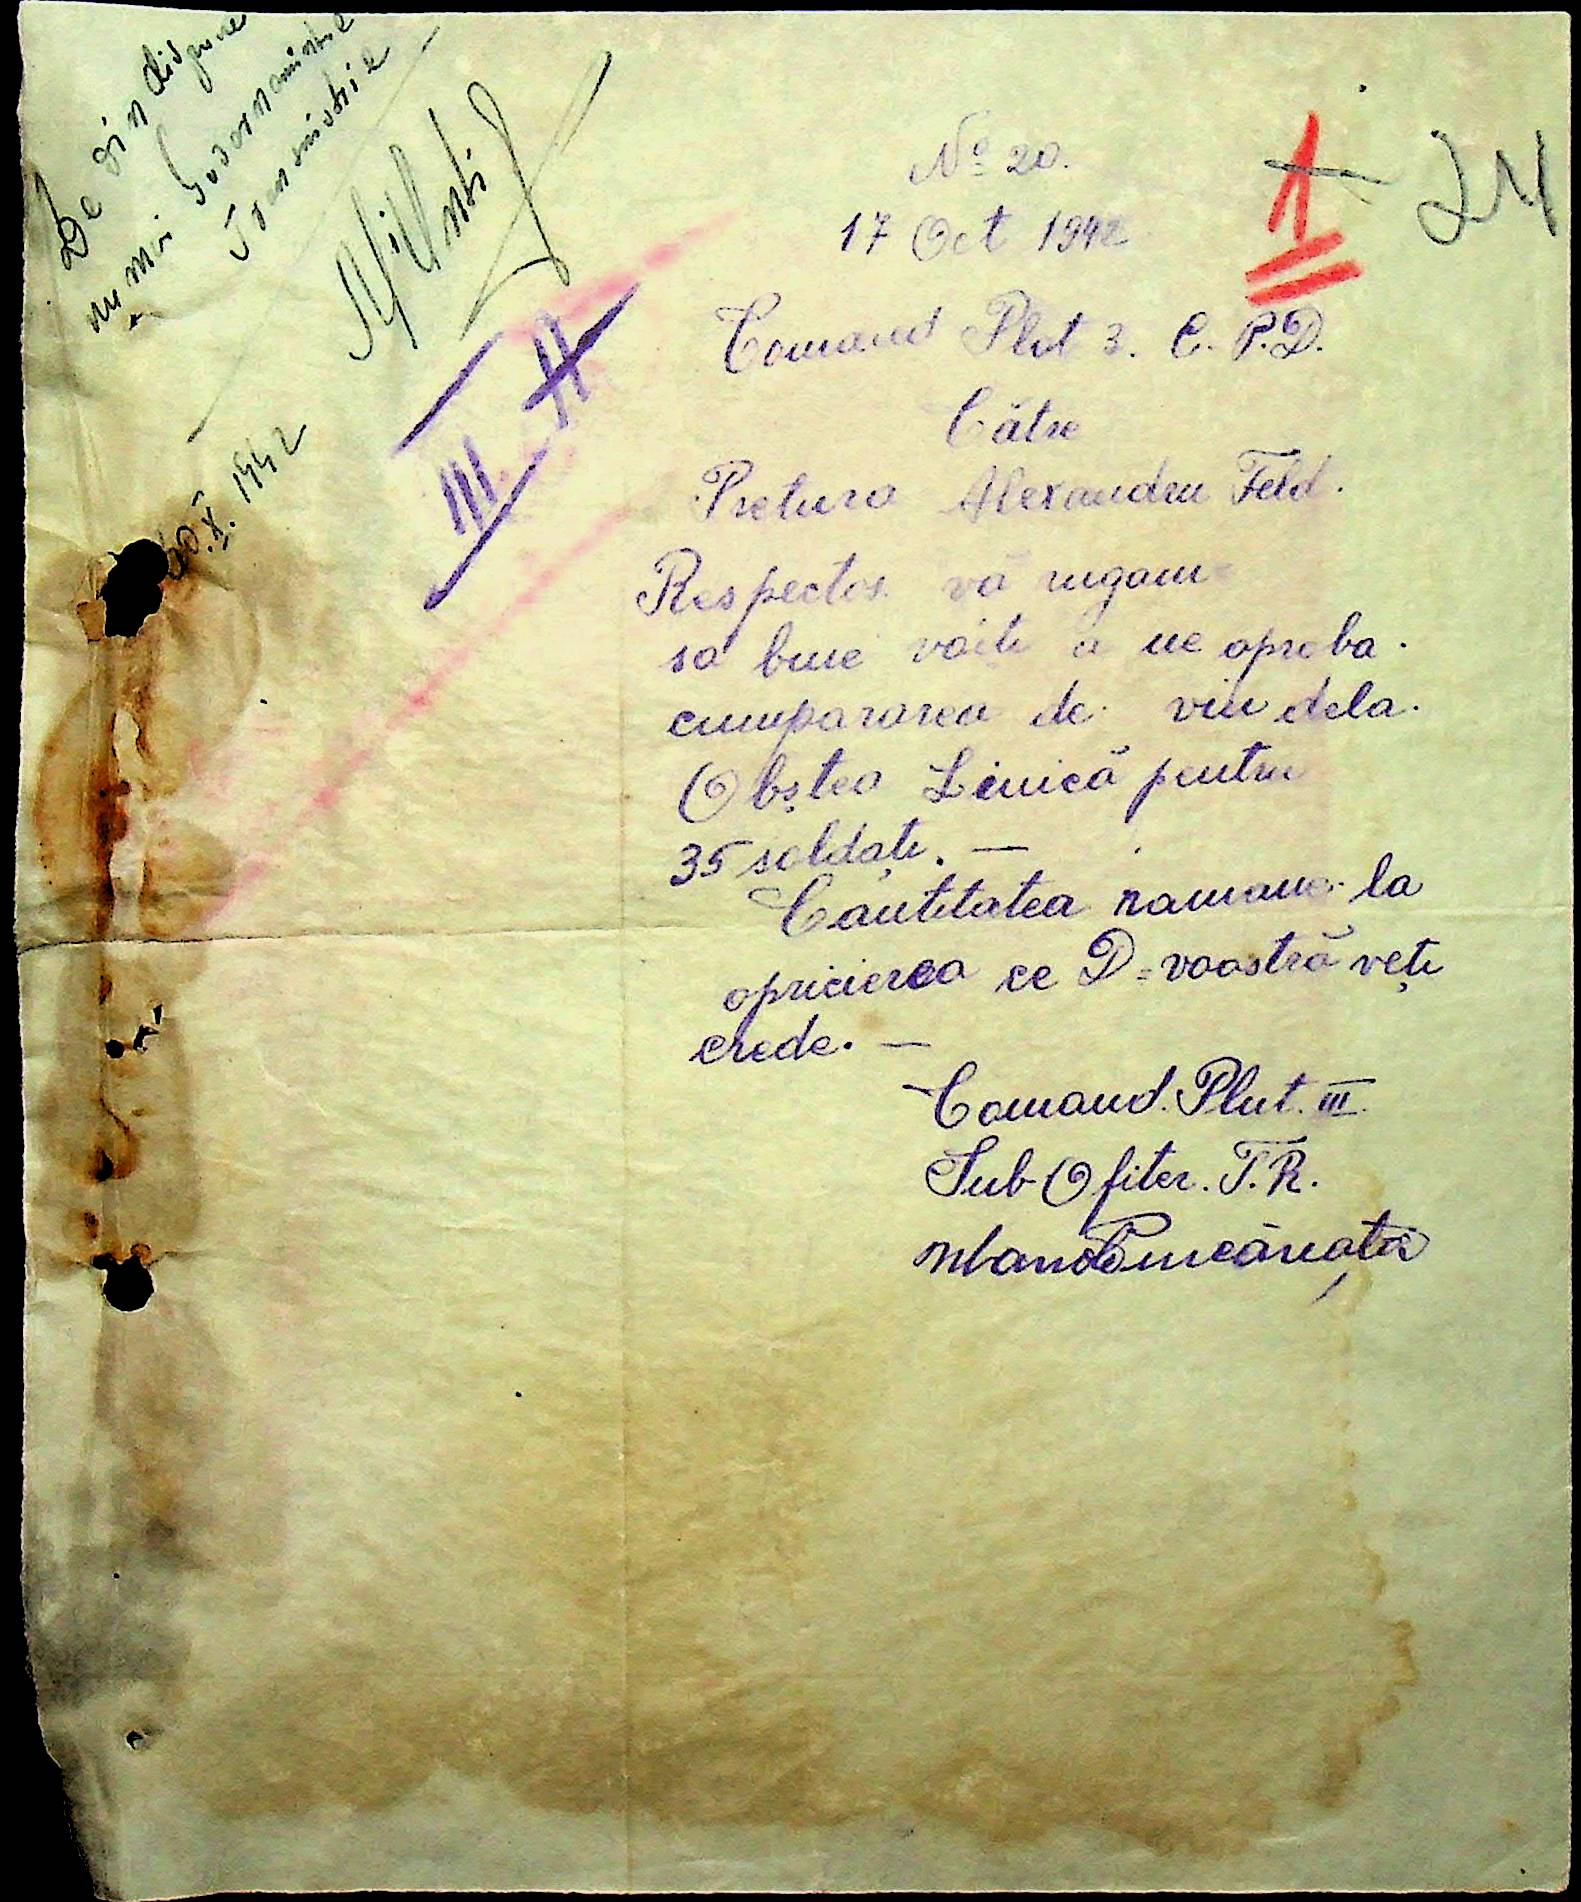 De vin dispune
numai Guvernamintul
Transnistriei
20.X.1942
III
1
24
No 20.
17 Oct 1942
Comand Plut 3. C. P.D.
Către
Pretura Alexandru Feld.
Respectos vă rugam
sa bine voiti a ne aproba.
cumpararea de vin dela.
Obștea Linică pentru
35 soldați. —
Cantitatea ramane la
apricierea ce D=voastră veți
crede. —
Comand. Plut. III.
Sub Ofiter. T.R.